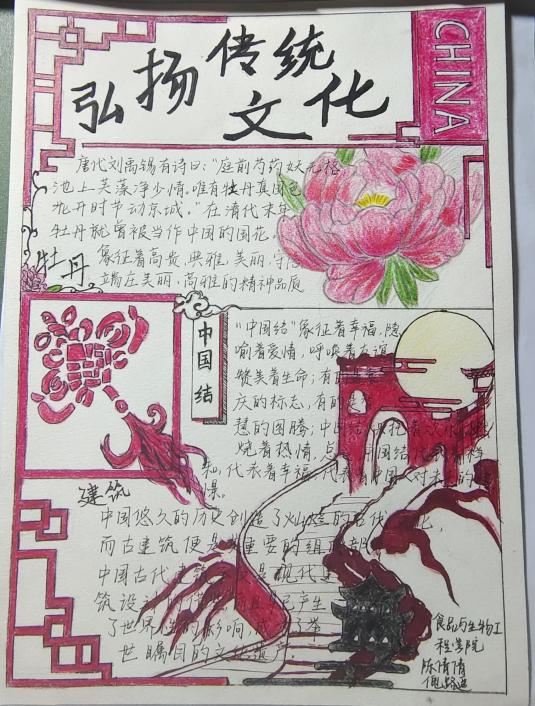 CHINA
弘扬传统
文化
唐代刘禹锡有诗曰:“庭前芍药妖无格
池上芙蕖净少情。唯有牡丹真国色
花开时节动京城。”在清代末年
牡丹就曾被当作中国的国花。
牡丹
象征着高贵,典雅,美丽,守
端庄美丽,高雅的精神品质
中国结
“中国结”象征着幸福,隐
喻着爱情,呼唤着友谊
赞美着生命;有的是
庆的标志,有的是
慧的图腾;中国结
烧着热情,点 中国结代表着祥
和,代表着幸福,代表 中国人对
果。
建筑
中国悠久的历史创造了灿烂的古代 化,
而古建筑便是 重要的组 部
中国古代建筑 是现代建
筑设计的借 且已产生
了世界性的影响,成 了举
世瞩目的文化遗产
食品与生物工
程学院
陈倩倩